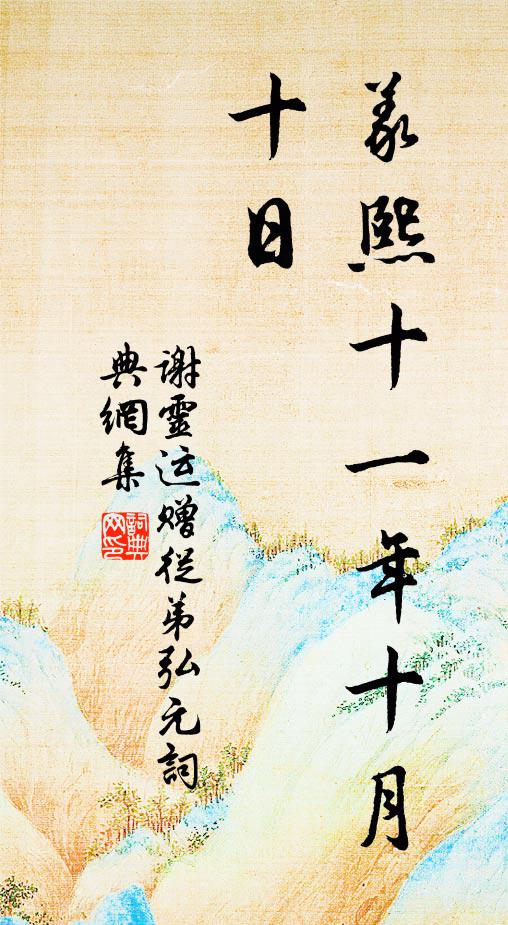 義熙十一年十月
十日
謝靈运贈從弟弘元詞
典網集
詞典
网印